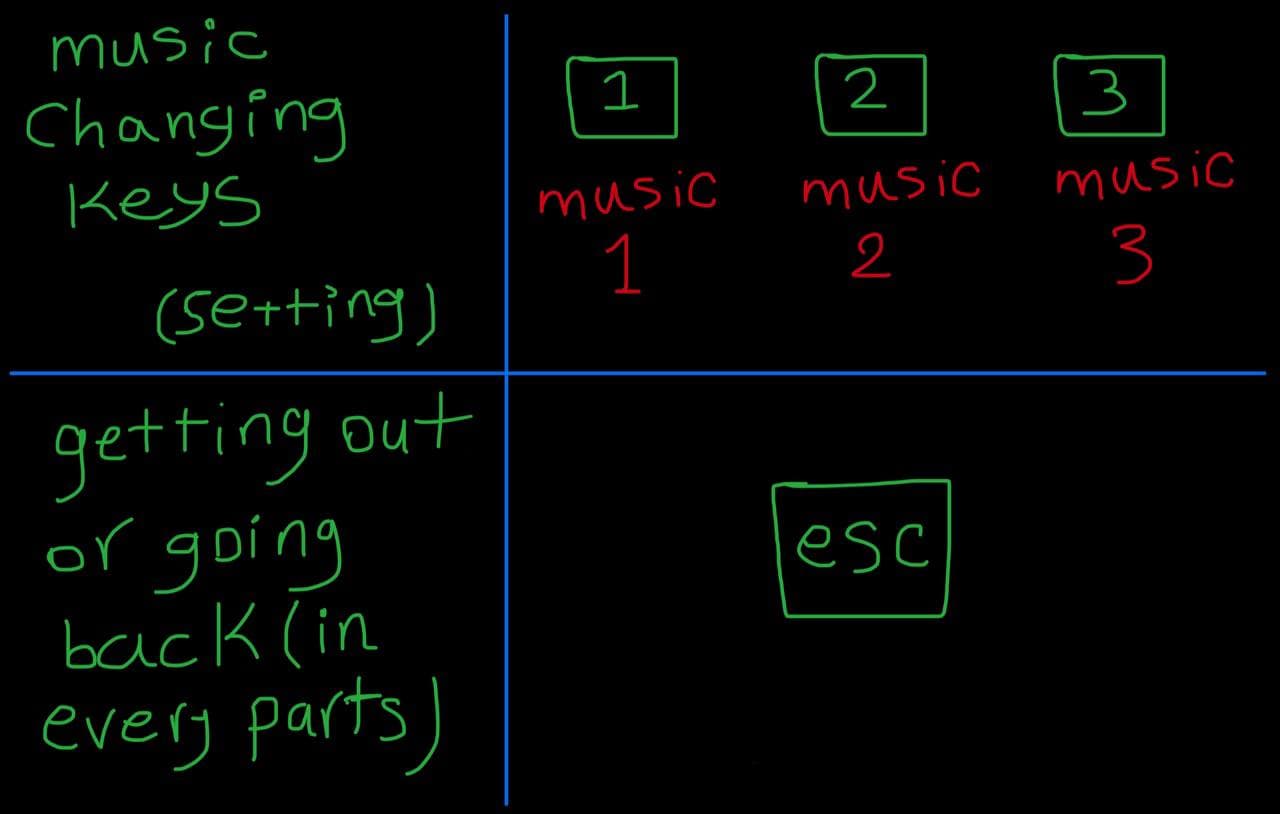 music
Changing
Keys
(setting)
1 2 3
music music music
1 2 3
getting out
or going
back (in
every parts)
esc